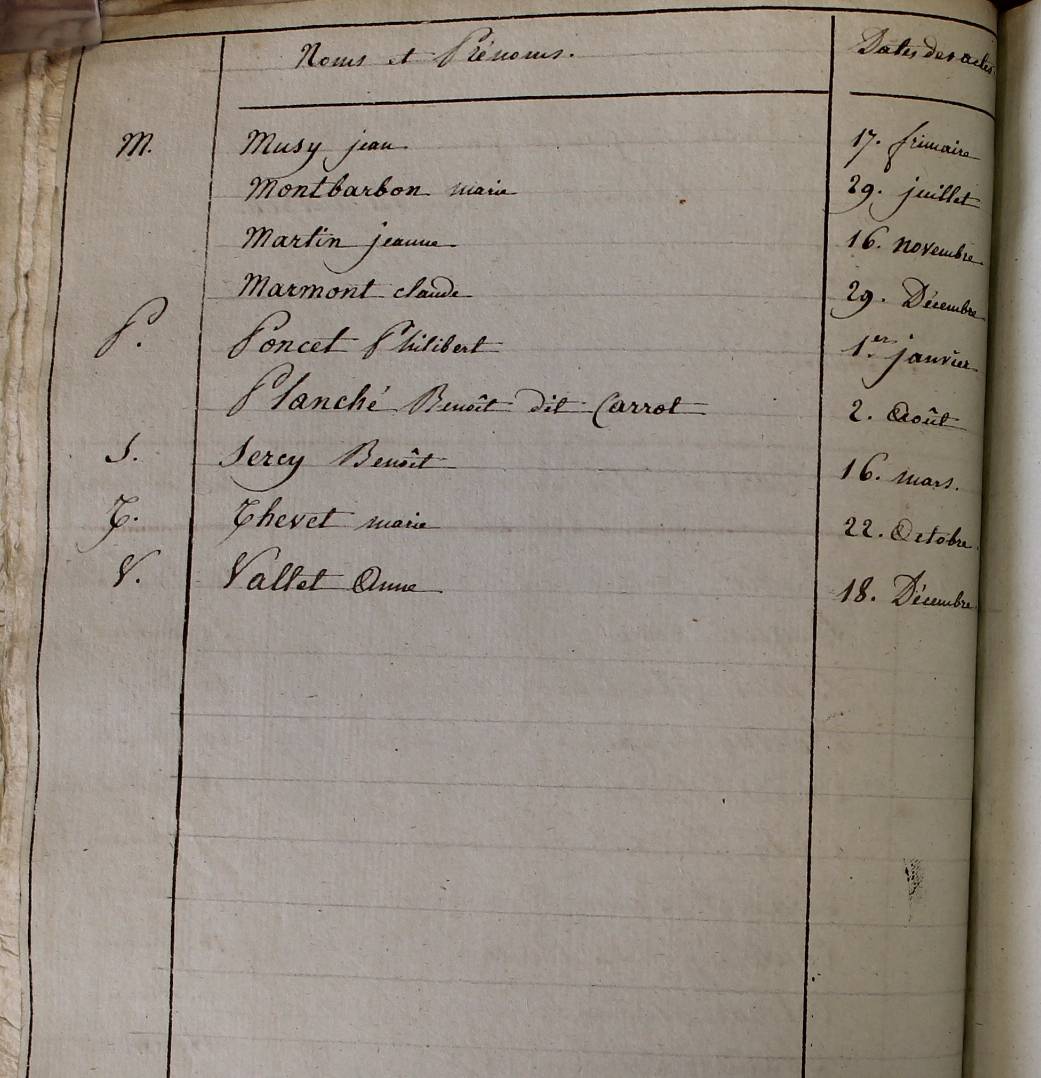 Noms et Prénoms. Dates des actes.
M. Musy jean 17. frimaire
Montbarbon marie 29. juillet
Martin jeanne 16. novembre
Marmont claude 29. Décembre
P. Poncet Philibert 1.er janvier
Planché Benoît dit Carrot 2. Août
S. Sercy Benoît 16. mars.
T. Thevet marie 22. Octobre.
V. Vallet Anne 18. Décembre